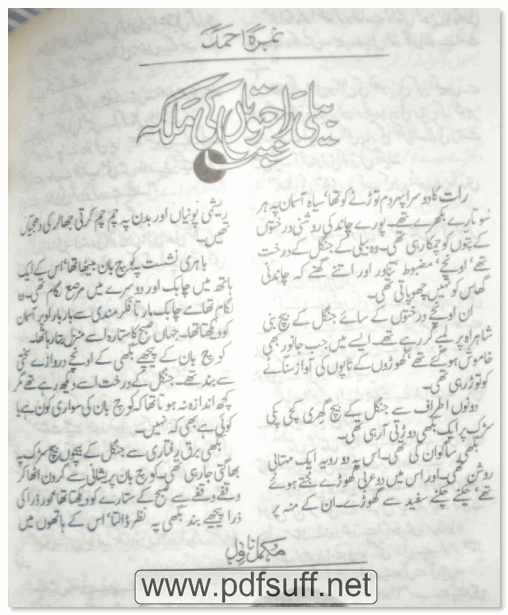 نمرہ احمد
بیلی راجپوتاں کی ملکہ
رات کا دوسرا پہر دم توڑنے کو تھا، سیاہ آسمان پہ ہر
سو تارے بکھرے تھے۔ پورے چاند کی روشنی درختوں
کے پتوں کو چمکا رہی تھی۔ وہ بیلی کے جنگل کے درخت
تھے، اونچے، مضبوط، تناور اور اتنے گھنے کہ چاندنی
گھاس کو نہیں چھوپاتی تھی۔
ان اونچے درختوں کے سائے جنگل کے بیچ بنی
شاہراہ پر لمبے گر رہے تھے۔ ایسے میں جب جانور بھی
خاموش ہو گئے تھے، گھوڑوں کے ٹاپوں کی آواز سناٹے
کو توڑ رہی تھی۔
دونوں اطراف سے جنگل کے بیچ گھری کچی پکی
سڑک پر ایک بگھی دوڑتی آ رہی تھی۔
بگھی ساگوان کی تھی۔ اس پہ دو رویہ ایک مہتابی
روشن تھی۔ اور اس میں دو عربی گھوڑے جتے ہوئے
تھے، چکنے چکنے سفید سے گھوڑے۔ ان کے منہ پر
ریشمی پونیاں اور بدن پہ چم چم کرتی جھالر کی دھجیاں
تھیں۔
باہری نشست پہ کوچ بان بیٹھا تھا، اس کے ایک
ہاتھ میں چابک اور دوسرے میں مرصع لگام تھی۔ وہ
لگام تھامے چابک مارتا فکرمندی سے بار بار اوپر آسمان
کو دیکھتا تھا۔ جہاں صبح کا ستارہ اسے منزل بتا رہا تھا۔
کوچ بان کے پیچھے بگھی کے اونچے دروازے سختی
سے بند تھے۔ جنگل کے درخت اسے دیکھ رہے تھے مگر
کچھ اندازہ نہ ہوتا تھا کہ کوچ بان کی سواری کون ہے یا
کوئی ہے بھی کہ نہیں۔
بگھی برق رفتاری سے جنگل کے بیچوں بیچ سڑک پہ
بھاگتی جا رہی تھی۔ کوچ بان پریشانی سے گردن اٹھا کر
وقفے وقفے سے صبح کے ستارے کو دیکھتا تھا، اور ذرا کی
ذرا پیچھے بند بگھی پہ نظر ڈالتا، اس کے ہاتھوں میں
مکمل ناول
www.pdfsuff.net